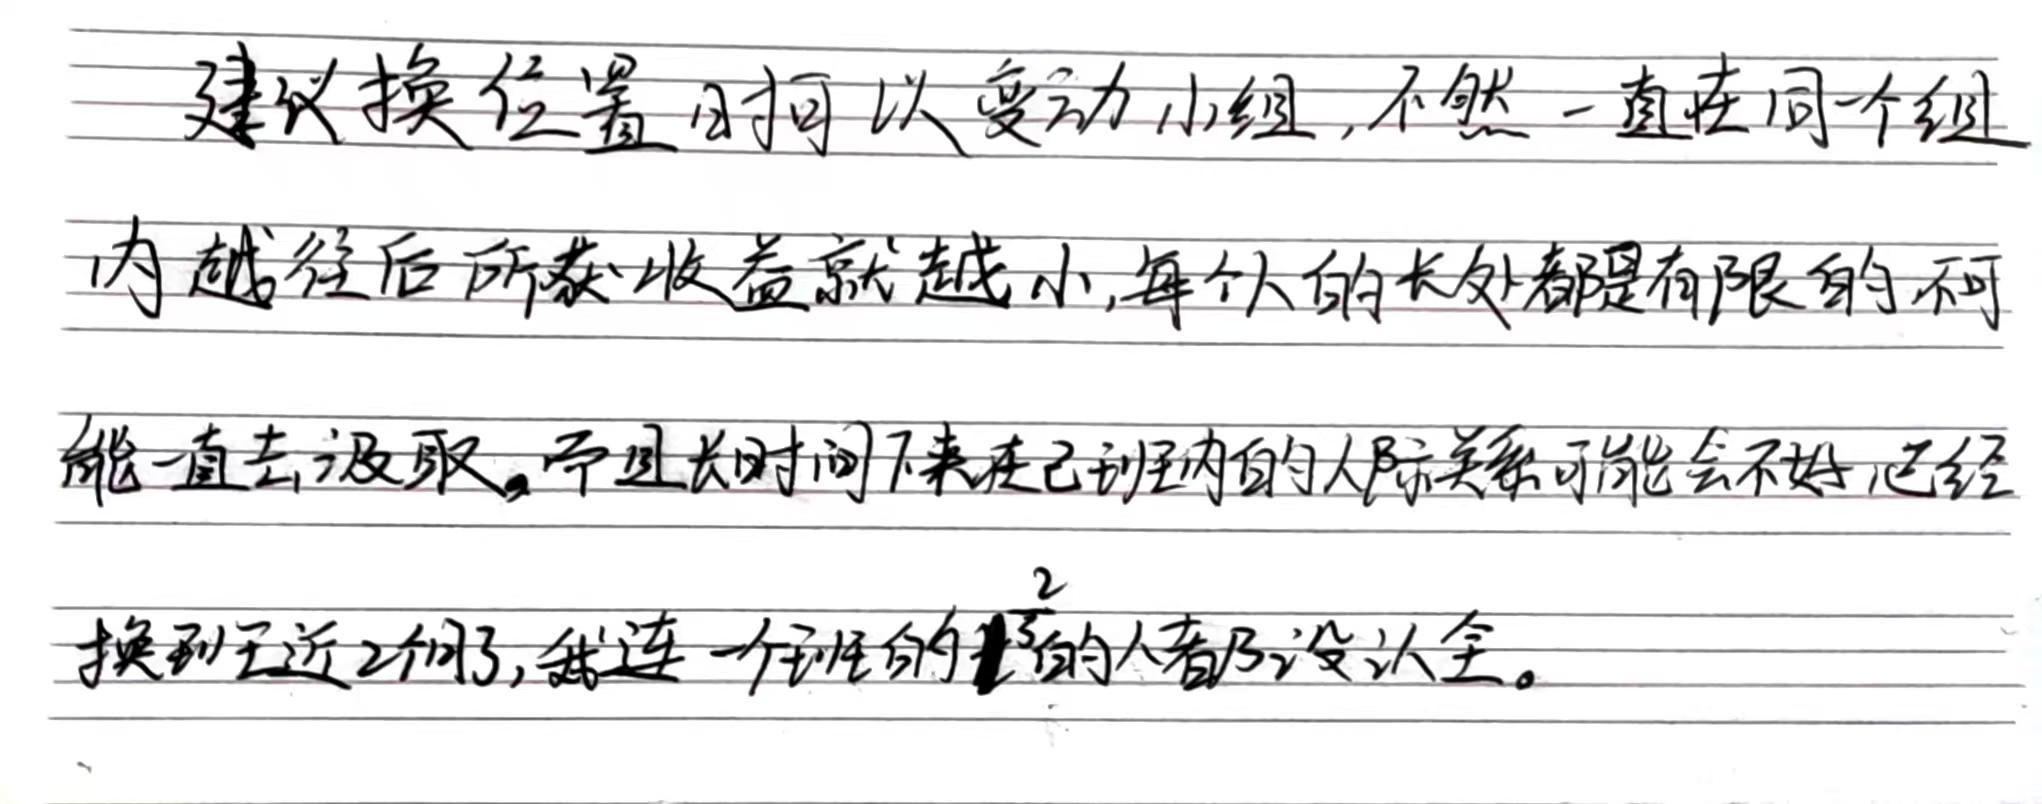 建议换位置时可以变动小组，不然一直在同一个组
内越往后所获收益就越小，每个人的长处都是有限的，不可
能一直去汲取。而且长时间下来在己班内的人际关系可能会不好，已经
换到班近2个月了，我连一个班的2/3的人都没认全。